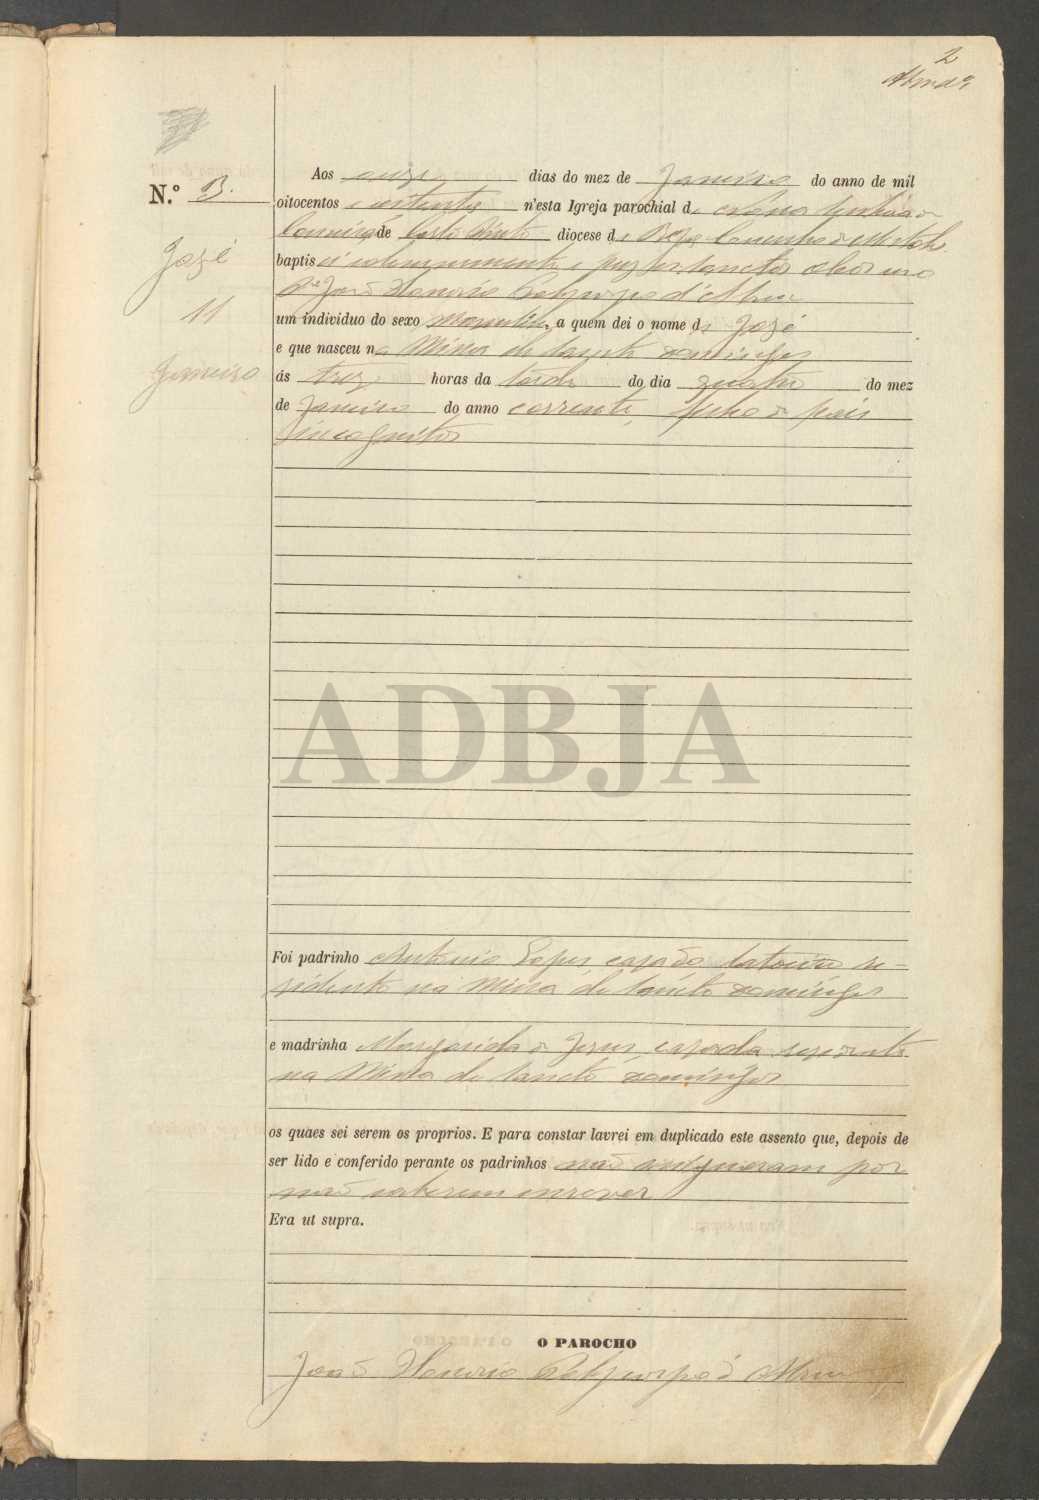 2
N.º 3.
Aos onze dias do mez de Janeiro do anno de mil
oitocentos e setenta n'esta Igreja parochial de
de Corte do Pinto diocese de Beja Concelho de Mertola
baptisei solemnemente e puz os sanctos oleos
P.e João Honorio d'Abreu
um individuo do sexo masculino, a quem dei o nome de José
e que nasceu na Mina de Sancto Domingos
ás trez horas da tarde do dia quatro do mez
de Janeiro do anno corrente, filho de pais
incognitos
José
11
Janeiro
ADBJA
Foi padrinho Antonio Lopes casado latoeiro re-
sidente na Mina de Sancto Domingos
e madrinha Margarida de Jesus, casada residente
na Mina de Sancto Domingos
os quaes sei serem os proprios. E para constar lavrei em duplicado este assento que, depois de
ser lido e conferido perante os padrinhos não assignaram por
não saberem escrever
Era ut supra.
O PAROCHO
João Honorio d'Abreu